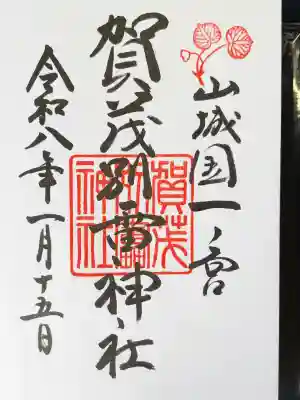 山城国一ノ宮
賀茂別雷神社
令和八年一月十五日
賀茂
別雷
神社